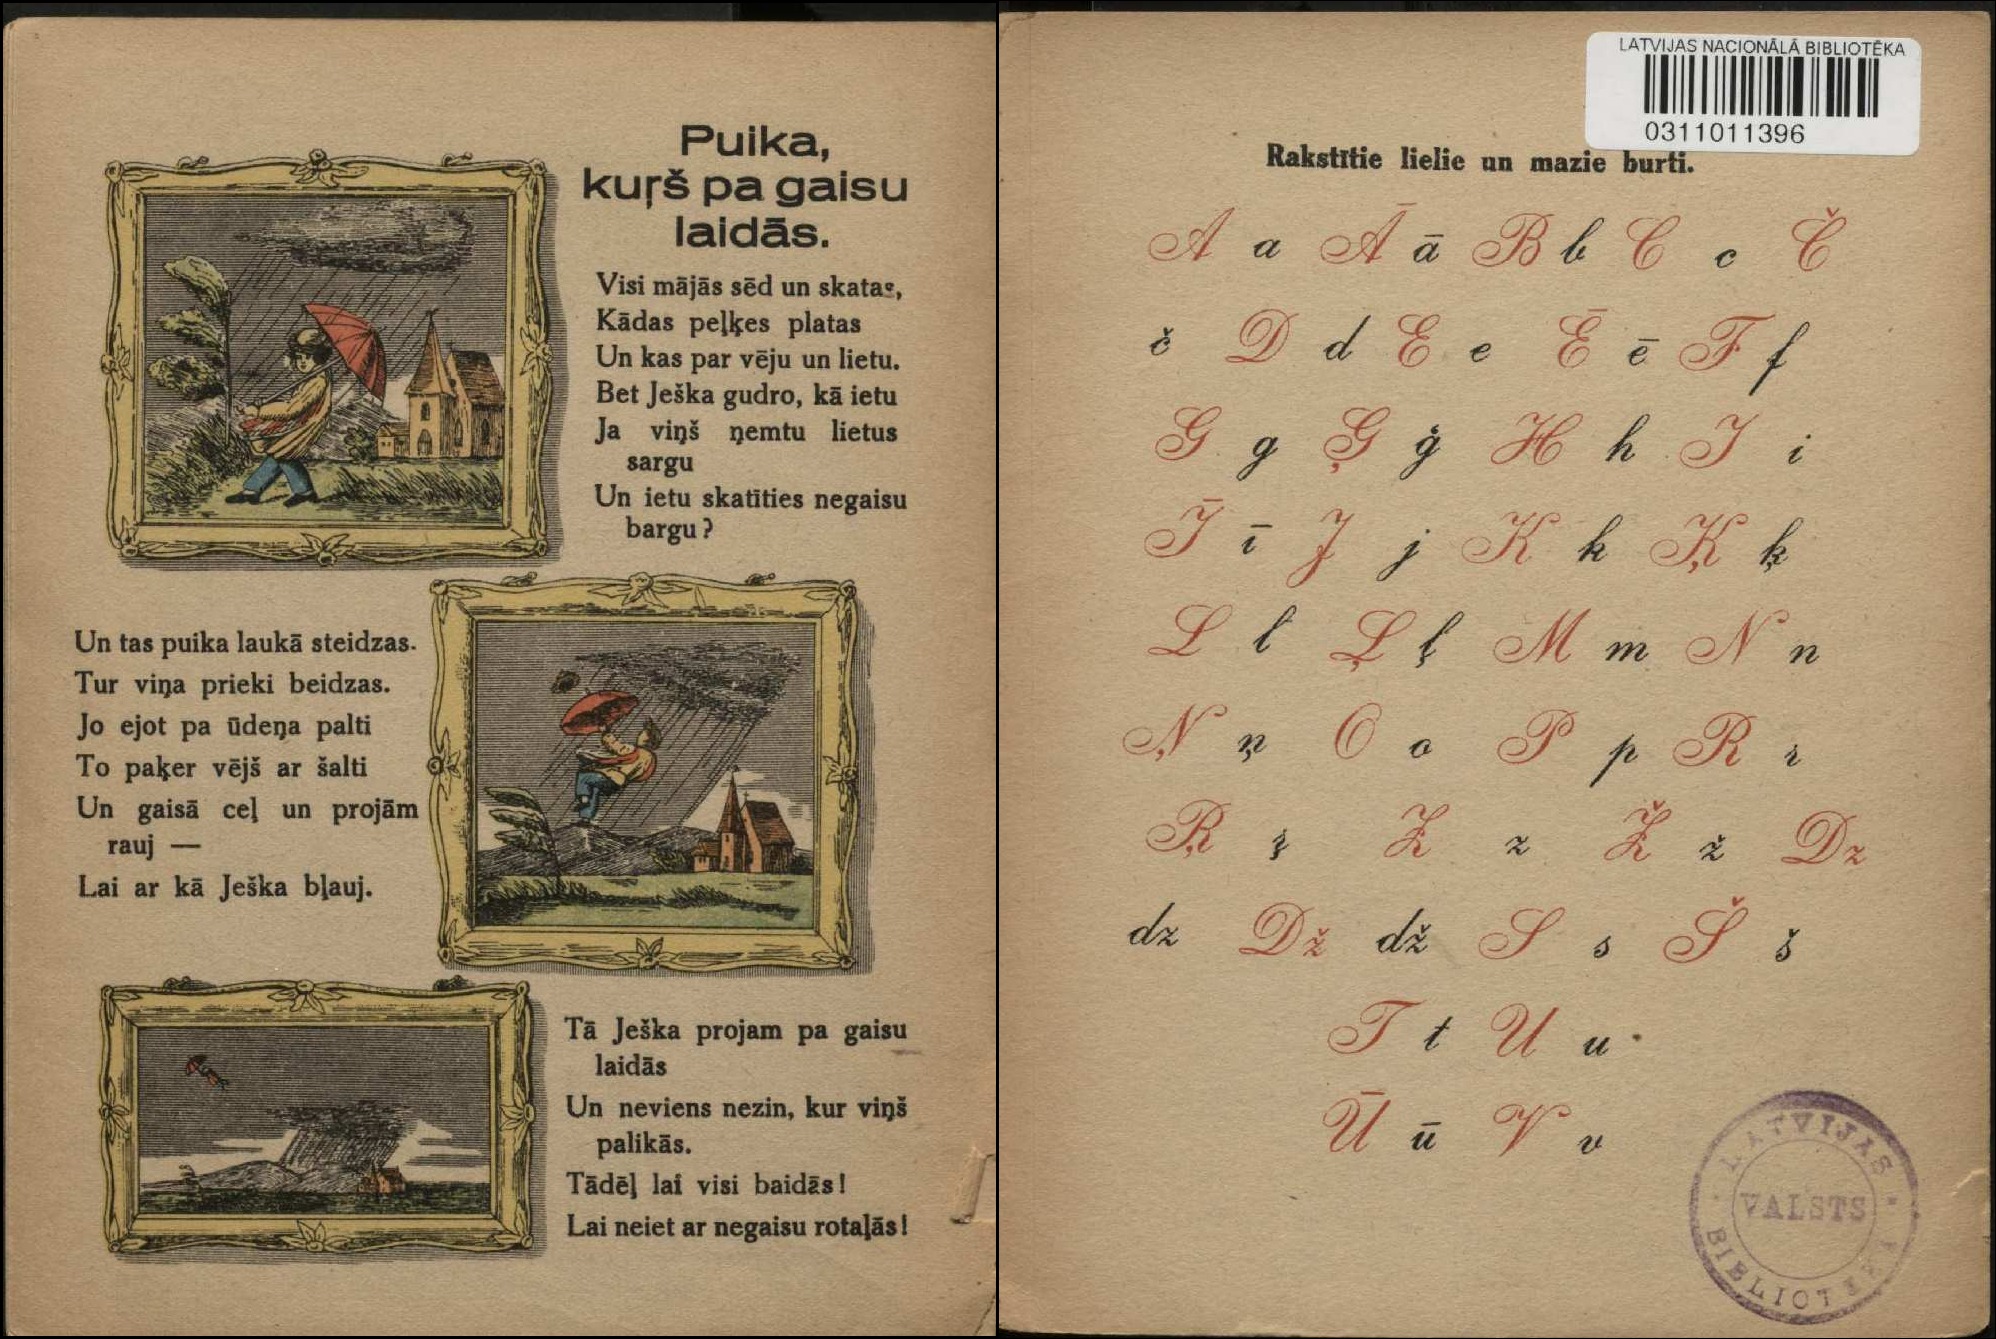 Puika,
kuŗš pa gaisu
laidās.
Visi mājās sēd un skatas,
Kādas peļķes platas
Un kas par vēju un lietu.
Bet Ješka gudro, kā ietu
Ja viņš ņemtu lietus
sargu
Un ietu skatīties negaisu
bargu?
Un tas puika laukā steidzas.
Tur viņa prieki beidzas.
Jo ejot pa ūdeņa palti
To paķer vējš ar šalti
Un gaisā ceļ un projām
rauj —
Lai ar kā Ješka bļauj.
Tā Ješka projam pa gaisu
laidās
Un neviens nezin, kur viņš
palikās.
Tādēļ lai visi baidās!
Lai neiet ar negaisu rotaļās!
LATVIJAS NACIONĀLĀ BIBLIOTĒKA
0311011396
Rakstītie lielie un mazie burti.
A a Ā ā B b C c Č
č D d E e Ē ē F f
G g Ģ ģ H h I i
Ī ī J j K k Ķ ķ
L l Ļ ļ M m N n
Ņ ņ O o P p R r
Ŗ ŗ Z z Ž ž Dz
dz Dž dž S s Š š
T t U u
Ū ū V v
LATVIJAS
VALSTS
BIBLIOTEKA